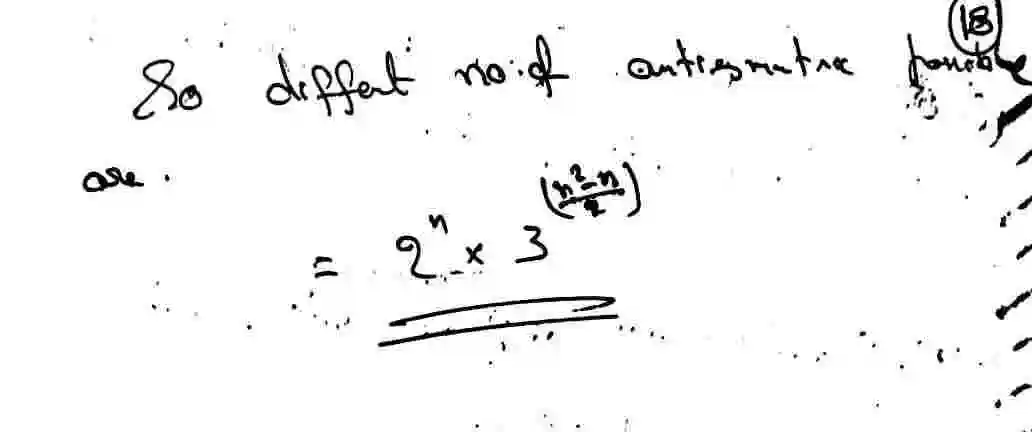 18
So diffent no. of antisymmetric possible
are.
= 2^n × 3^((n^2-n)/2)